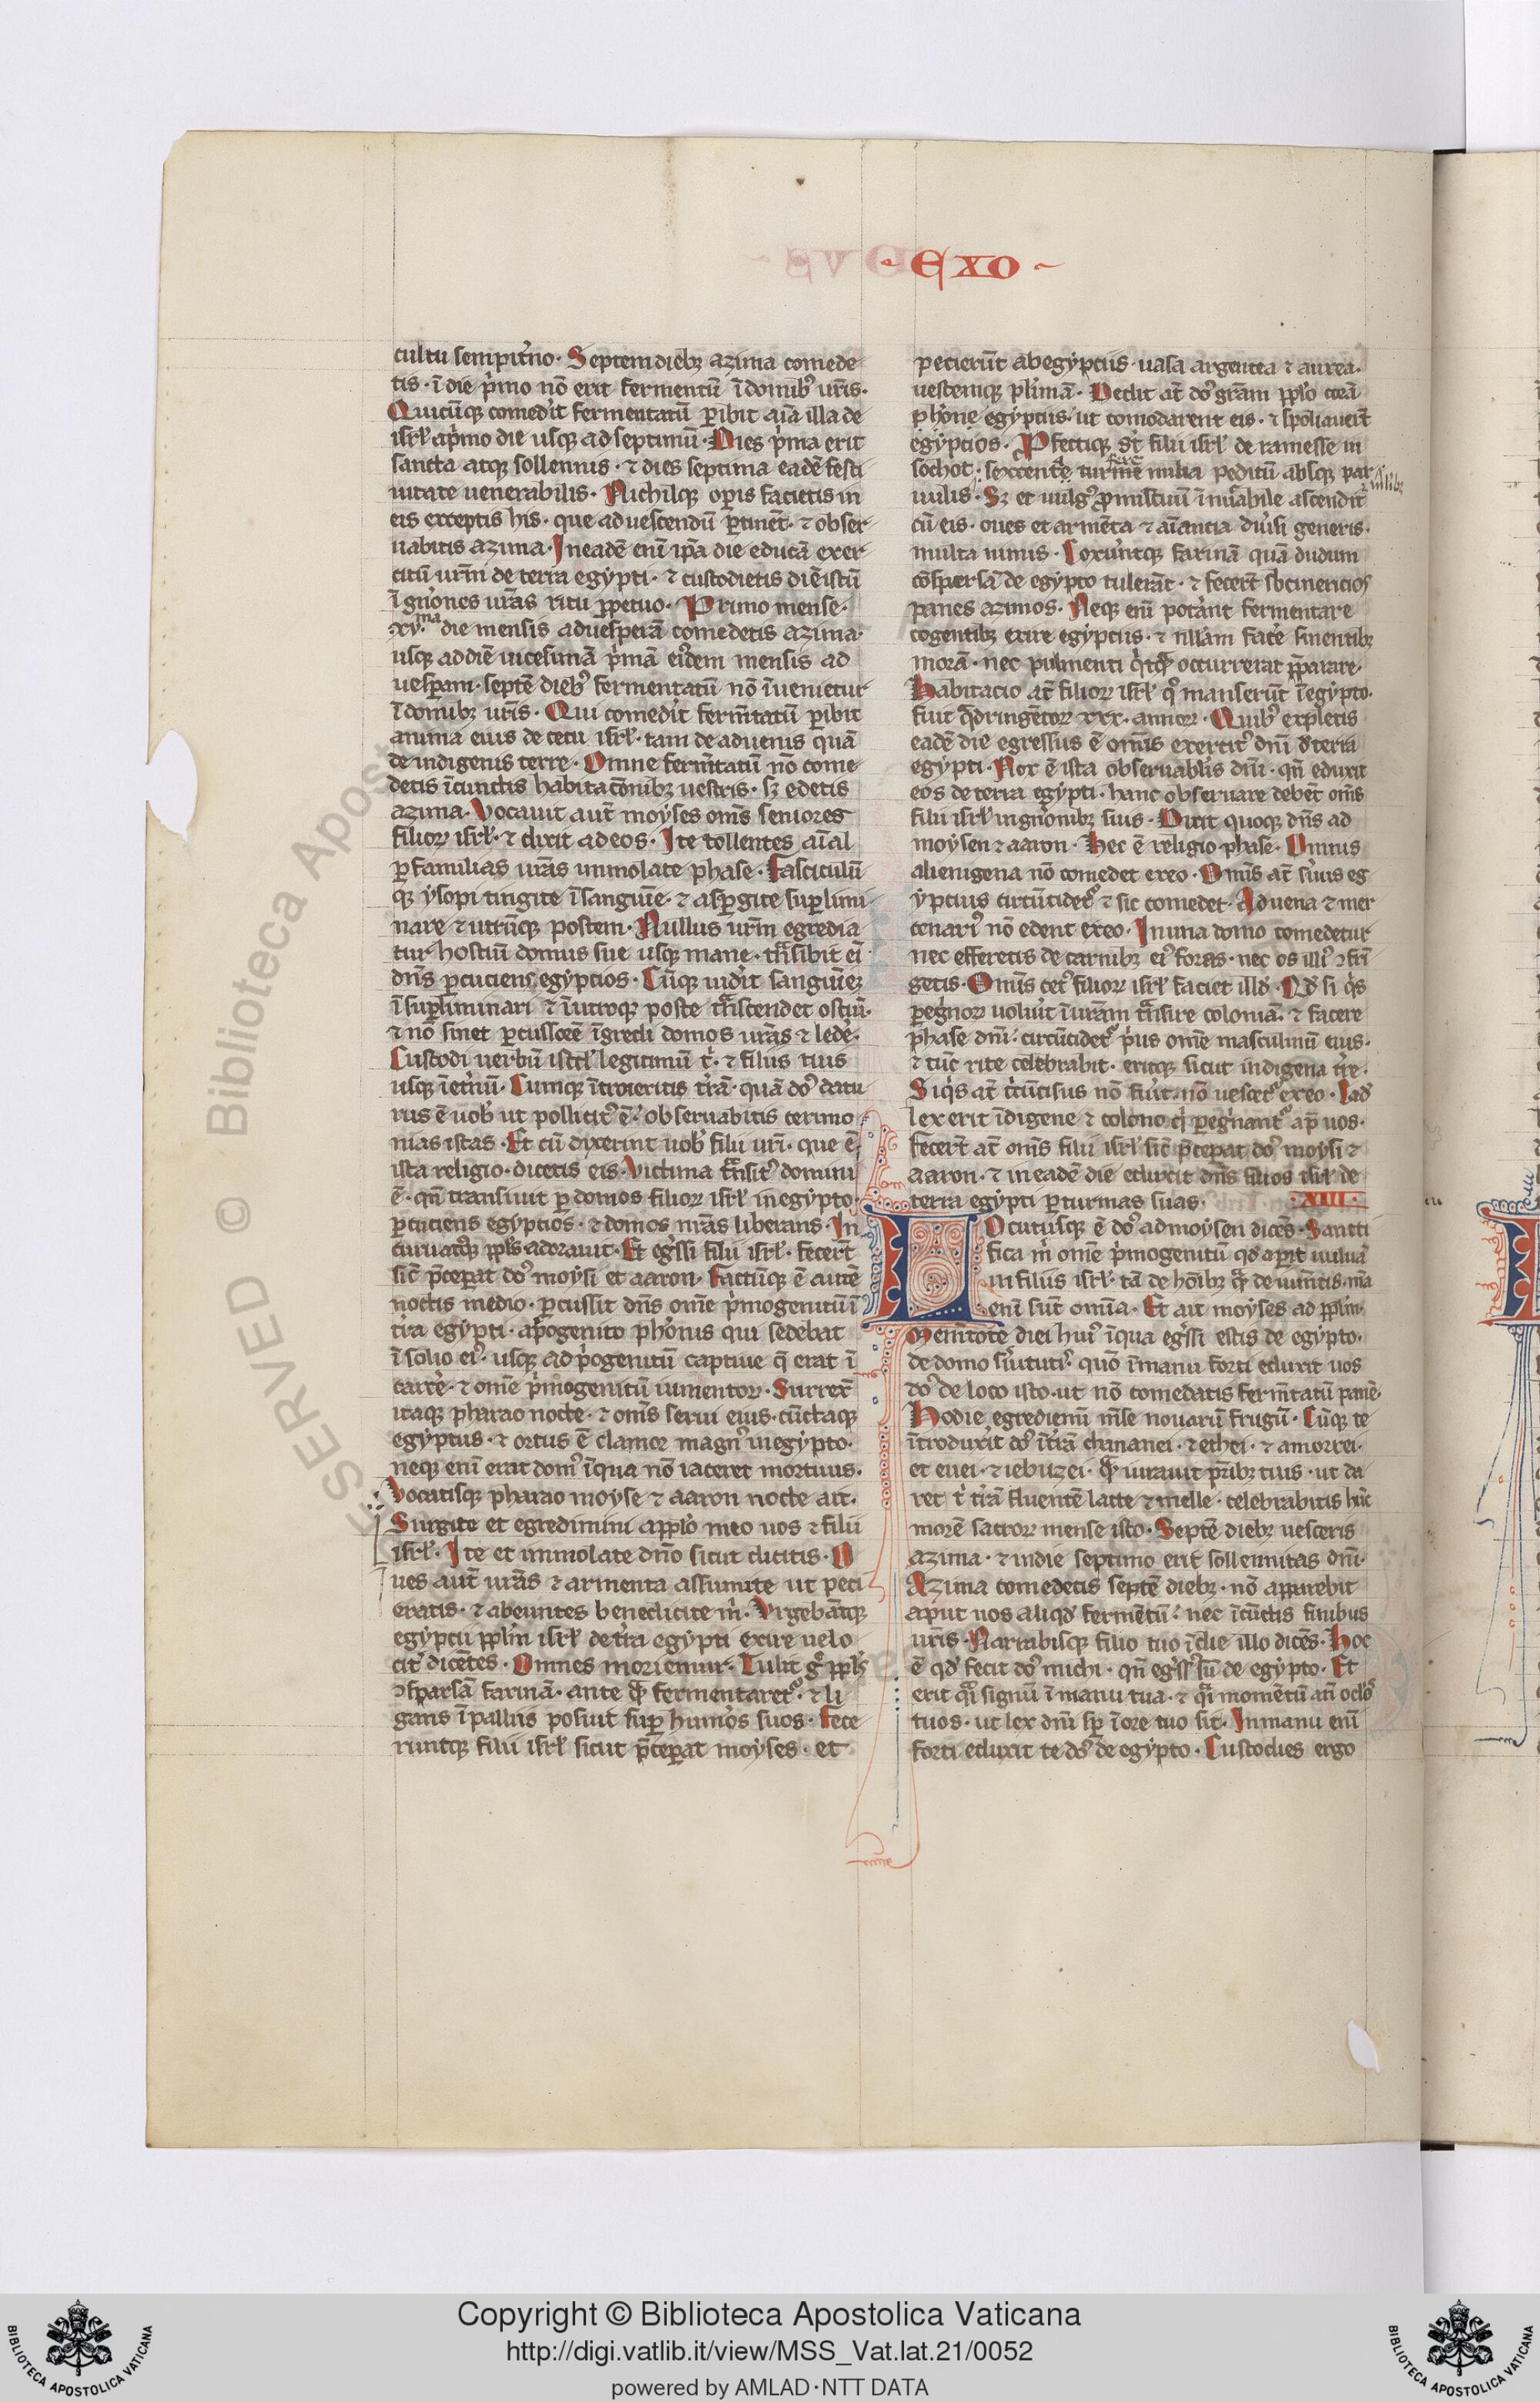 EXO
cultu sempit̾no. Septem dieb; azima comede
tis. ī die p̾mo nō erit fermentū ī domib⁹ ur̄is.
Quicūq; comed̾it fermentatū ꝑibit aīa illa de
isrl̾ ap̾mo die usq; ad septimū. Dies p̾ma erit
sancta atq; sollennis. ⁊ dies septima eadē festi
uitate uenerabilis. Nichilq; oꝑis facietis in
eis exceptis his. que ad uescendū ꝑtinēt. ⁊ obser
uabitis azima. In eadē enī ip̄a die educā exer
citū ur̄m de terra egypti. ⁊ custodietis diē istū
ī gn̾ones ur̄as ritu ꝑpetuo. Primo mense.
xv.ma die mensis ad uesperā comedetis azima.
usq; ad diē uicesimā p̾mā ei⁹dem mensis ad
uesꝑam. septē dieb⁹ fermentatū nō īuenietur
ī domib; ur̄is. Qui comed̾it ferm̄tatū ꝑibit
anima eius de cetu isrl̾. tam de aduenis quā
de indigenis terre. Omne ferm̄tatū nō come
detis ī cunctis habitacōnib; uestris. s; edetis
azima. Vocauit aut̄ moyses om̄s seniores
filioꝝ isrl̾. ⁊ dixit ad eos. Ite tollentes aīal
ꝑ familias ur̄as immolate phase. Fasciculū
q; ysopi tingite ī sanguīe. ⁊ asꝑgite suꝑlimi
nare ⁊ utrūq; postem. Nullus ur̄m egredia
tur hostiū domus sue usq; mane. trāsibit eī
dn̄s ꝑcuciens egyptios. Cūq; uid̾it sanguinē
ī suꝑliminari ⁊ ī utroq; poste trāscendet ostiū.
⁊ nō sinet ꝑcussorē īgredi domos ur̄as ⁊ led̾e.
Custodi uerbū istd̾ legitimū t̾. ⁊ filiis tuis
usq; ī et̾nū. Cumq; ītroieritis t̾rā. quā do⁹ datu
rus ē uob̾ ut pollicit⁹ ē. obseruabitis cerimo
nias istas. Et cū dyxerint uob̾ filii ur̄i. que ē
ista religio. dicetis eis. Victima trāsit⁹ domini
ē. qn̄ transiuit ꝑ domos filioꝝ isrl̾ in egypto.
ꝑcuciens egyptios. ⁊ domos nr̄as liberans. In
curuatusq; ppl̾s adorauit. Et eg̾ssi filii isrl̾. fecer̄t
sic̄ p̄ceꝑat do⁹ moysi et aaron. Factūq; ē autē
noctis medio. ꝑcussit dn̄s om̄e p̾mogenitū ī
t̾ra egypti. a p̾mogenito pha̾onis qui sedebat
ī solio ei⁹. usq; ad p̾mogenitū captiue q̄ erat ī
carc̾e. ⁊ om̄e p̾mogenitū iumentoꝝ. Surrex̄
itaq; pharao nocte. ⁊ om̄s serui eius. cūctaq;
egyptus. ⁊ ortus ē clamor magn⁹ in egypto.
neq; enī erat dom⁹ ī qua nō iaceret mortuus.
Vocatisq; pharao moyse ⁊ aaron nocte ait.
Surgite et egredimini a ppl̾o meo uos ⁊ filii
isrl̾. Ite et immolate dn̄o sicut dicitis. O
ues aut̄ ur̄as ⁊ armenta assumite ut peci
eratis. ⁊ abeuntes benedicite m̾. Vrgebātq;
egyptii ppl̾m isrl̾ de t̾ra egypti exire uelo
cit̾ dicētes. Omnes moriemur. Tulit g̾ ppl̾s
ↄsparsā farinā. ante q̄ fermentaret̾. ⁊ li
gans ī palliis posuit suꝑ hum̾os suos. Fece
runtq; filii isrl̾ sicut p̄ceꝑat moyses. et
pecierūt ab egyptiis. uasa argentea ⁊ aurea.
uestemq; pl̾imā. Dedit at̄ do⁹ gr̄am ppl̾o corā
pha̾one egyptiis. ut comodarent eis. ⁊ spoliauer̄t
egyptios. Pfectiq; st̾ filii isrl̾ de ramesse in
sochot. sexcenta fere milia peditū absq; par
uulis. S; et uulg⁹ ꝓmiscuū īnum̾abile ascendit
cū eis. oues et armēta ⁊ aīantia diu̾si generis.
multa nimis. Coxer̄tq; farinā quā dudum
cōspersā de egypto tulerāt. ⁊ fecer̄t sbcinericios
panes azimos. Neq; enī pot̾ant fermentare
cogentib; exire egyptiis. ⁊ nllam fac̾e sinentib;
morā. nec pulmenti q̾cq̄ occurrerat p̄parare.
Habitacio at̄ filioꝝ isrl̾ q̄ manserūt ī egypto.
fuit q̄dringētoꝝ xxx. annoꝝ. Quib⁹ expletis
eadē die egressus ē om̄is exercit⁹ dn̄i de terra
egypti. Nox ē ista obseruabilis dn̄i. qn̄ eduxit
eos de terra egypti. hanc obseruare debēt om̄s
filii isrl̾ in gn̾onib; suis. Dixit quoq; dn̄s ad
moysen ⁊ aaron. Hec ē religio phase. Omnis
alienigena nō comedet ex eo. Om̄is at̄ s̾uus eg
yptius circūcidet̾ ⁊ sic comedet. Aduena ⁊ mer
cenari⁹ nō edent ex eo. In una domo comedetur
nec efferetis de carnib; ei⁹ foras. nec os illi⁹ ↄfrī
getis. Om̄is cet⁹ filioꝝ isrl̾ faciet illd̾. Qd̾ si q̾s
ꝑeg̾noꝝ uolu̾it ī ur̄am trāsire coloniā. ⁊ facere
phase dn̄i. circūcidet̾ p̾us om̄e masculinū eius.
⁊ tūc rite celebrabit. eritq; sicut indigena t̾re.
Siq̾s at̄ circūcisus nō fu̾it. nō uescet̾ ex eo. Ead̾
lex erit īdigene ⁊ colono q̾ ꝑeg̾nant̾ ap̄ uos.
Fecer̄t at̄ om̄s filii isrl̾ sic̄ p̄ceꝑat do⁹ moysi ⁊
aaron. ⁊ in eadē die eduxit dn̄s filios isrl̾ de
terra egypti ꝑ turmas suas. XIII.
Locutusq; ē do⁹ ad moysen dicēs. Sancti
fica m̾ om̄e p̾mogenitū qd̾ aꝑit uuluā
in filiis isrl̾. tā de hōib; q̄ de iumētis. mea
enī sūt om̄ia. Et ait moyses ad ppl̾m.
Mem̄tote diei hui⁹ ī qua eg̾ssi estis de egypto.
de domo s̾uitutis. quō ī manu forti eduxit uos
do⁹ de loco isto. ut nō comedatis ferm̄tatū panē.
Hodie egredimī mēse nouarū frugū. Cūq; te
ītroduxit do⁹ ī t̾rā chananei. ⁊ ethei. ⁊ amorrei.
et euei. ⁊ iebuzei. q̄ iurauit pr̄ib; tuis. ut da
ret t̾ t̾rā fluentē lacte ⁊ melle. celebrabitis hūc
morē sacroꝝ mense isto. Septē dieb; uesceris
azima. ⁊ in die septimo erit sollennitas dn̄i.
Azima comedetis septē dieb;. nō apparebit
aput uos aliqd̾ fermētū. nec ī cūctis finibus
ur̄is. Narrabisq; filio tuo ī die illo dicēs. Hoc
ē qd̾ fecit do⁹ michi. qn̄ eg̾ss⁹ sū de egypto. Et
erit q̄i signū ī manu tua. ⁊ q̄i momētū an̄ oclo̾s
tuos. ut lex dn̄i sp̄ ī ore tuo sit. In manu enī
forti eduxit te do⁹ de egypto. Custodies ergo
Copyright © Biblioteca Apostolica Vaticana
http://digi.vatlib.it/view/MSS_Vat.lat.21/0052
powered by AMLAD·NTT DATA
BIBLIOTECA APOSTOLICA VATICANA
BIBLIOTECA APOSTOLICA VATICANA